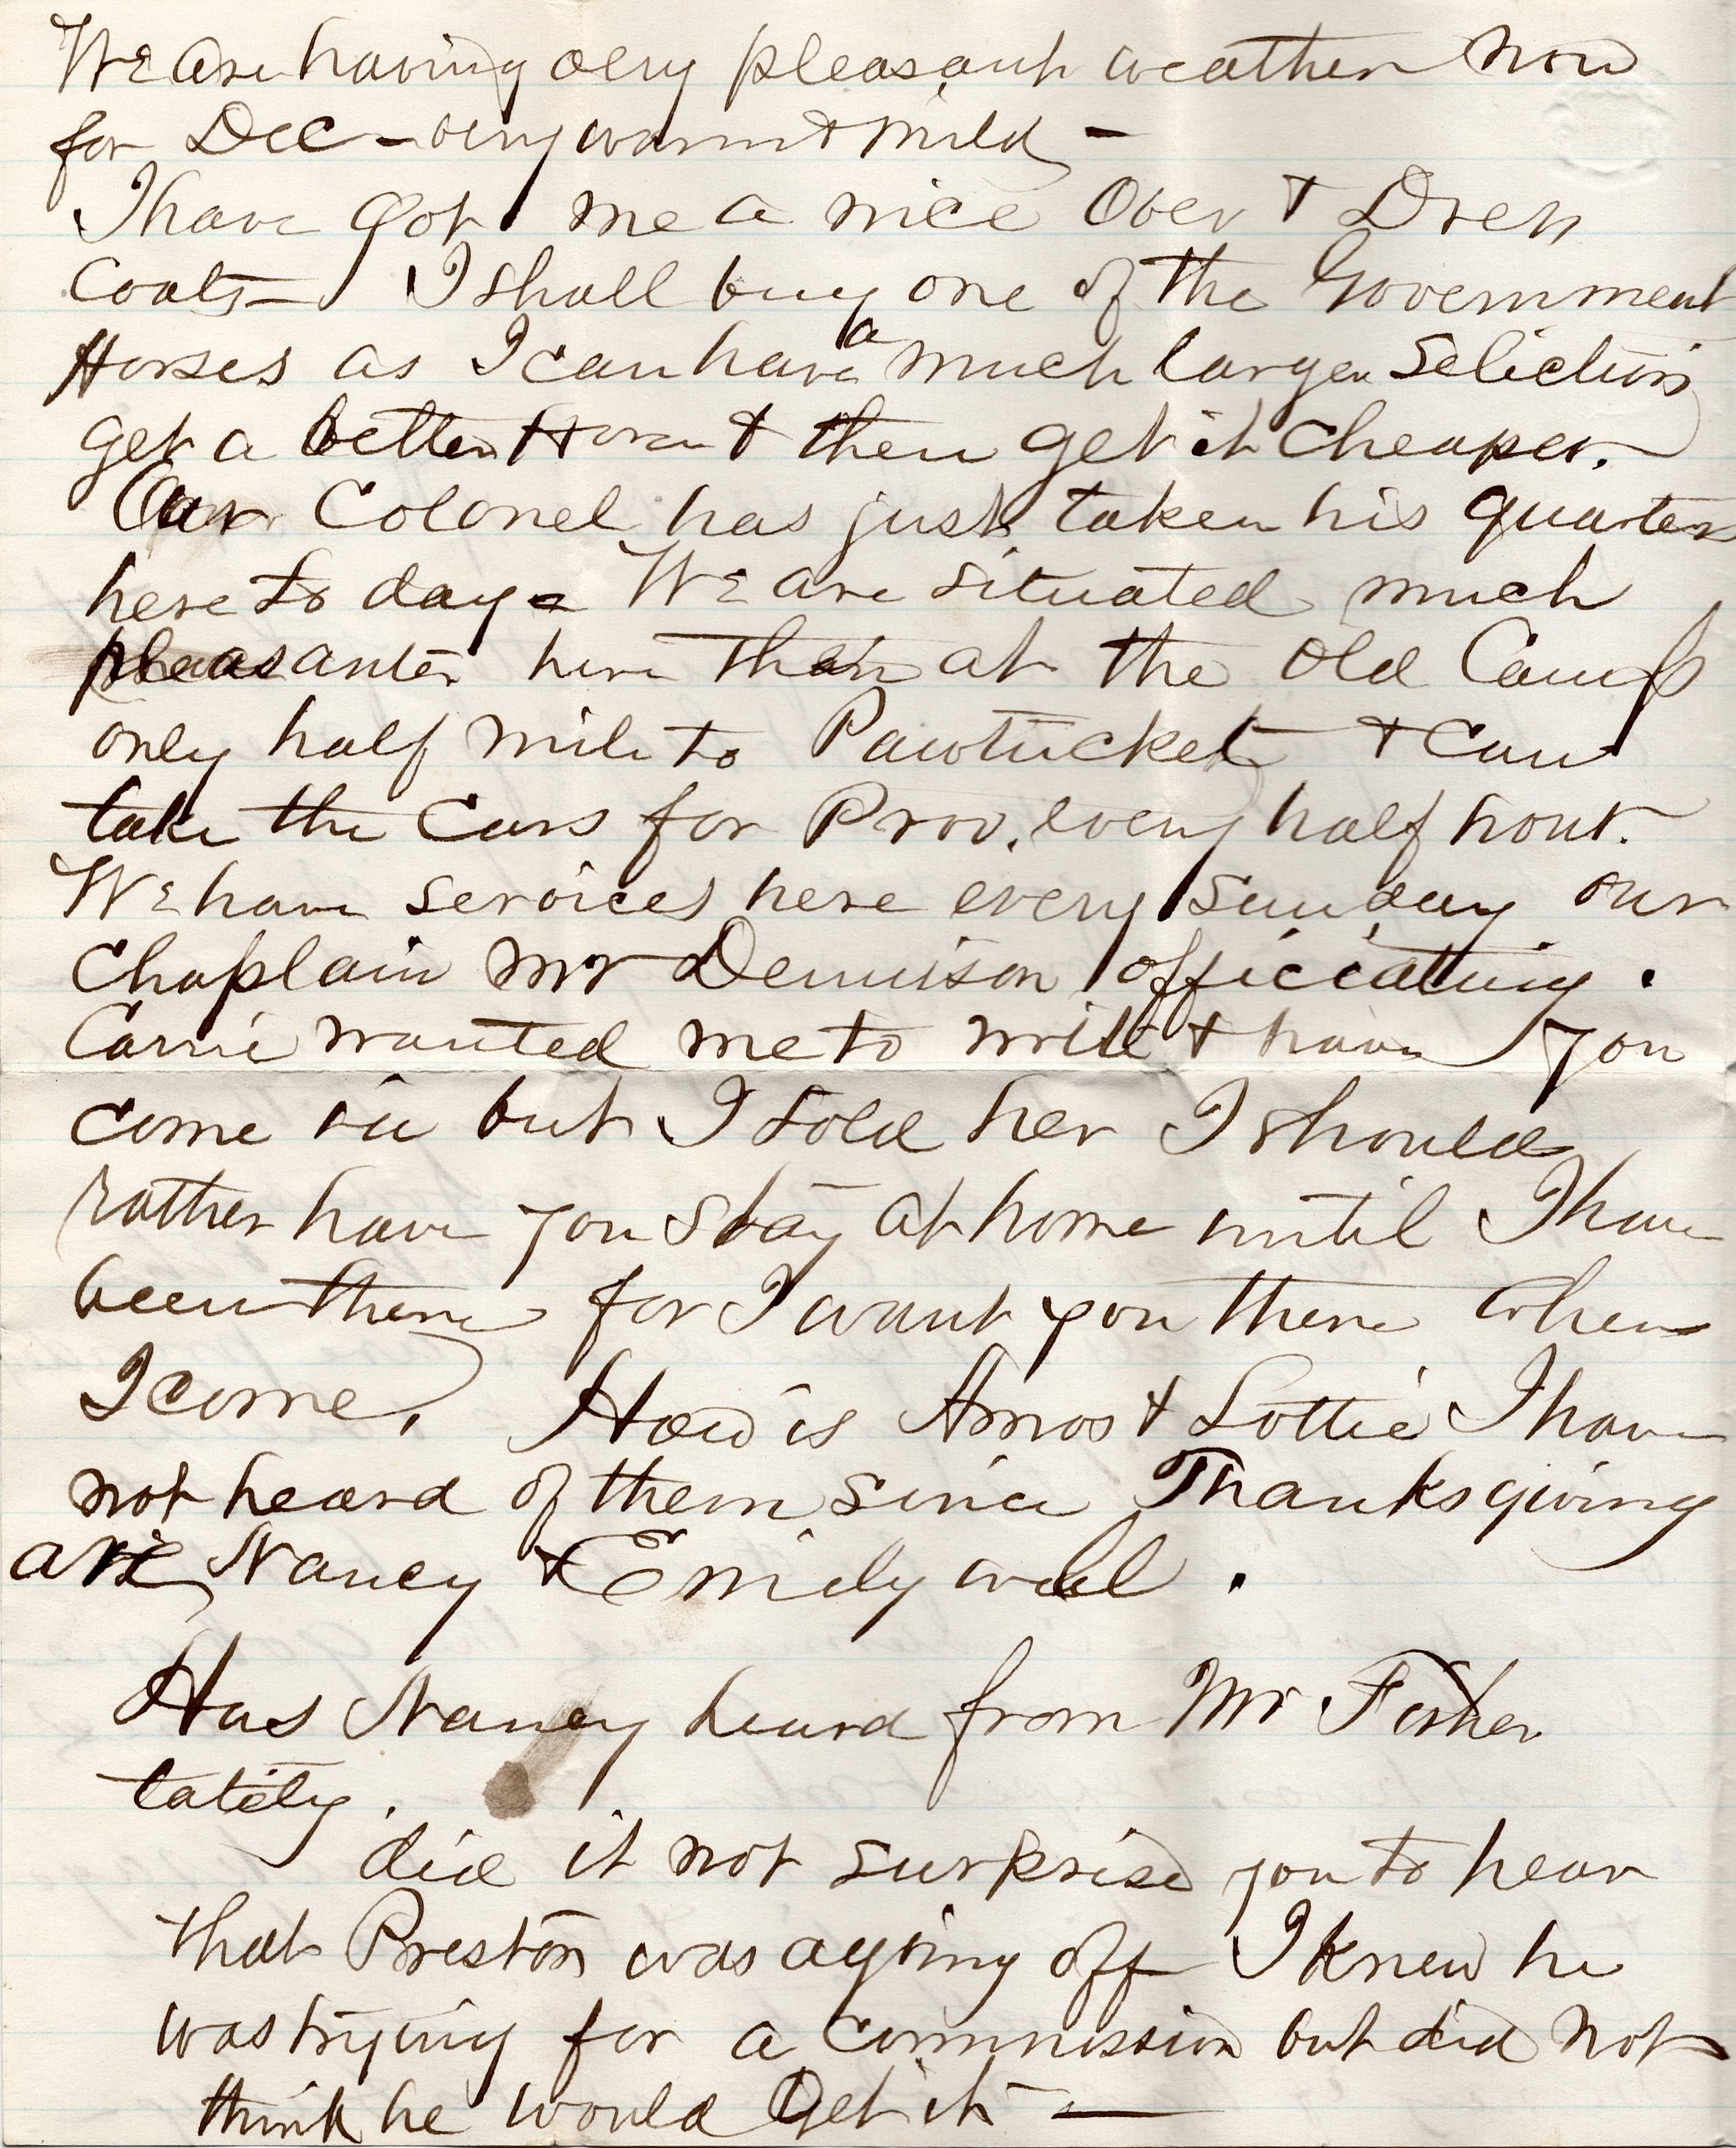 We are having very pleasant weather now
for Dec - very warm & mild -
I have got me a nice Over & Dress
Coats - I shall buy one of the Government
Horses as I can have a much larger selection
get a better Horse & then get it cheaper.
Our Colonel has just taken his quarters
here to day - We are situated much
pleasanter here than at the Old Camp
only half mile to Pawtucket & can
take the Cars for Prov. every half hour.
We have services here every Sunday our
Chaplain Mr Dennison officiating.
Carrie wanted me to write & have you
come in but I told her I should
rather have you stay at home until I have
been there for I want you there when
I come. How is Amos & Lottie I have
not heard of them since Thanksgiving
are Nancy & Emily well.
Has Nancy heard from Mr Fisher
lately.
did it not surprise you to hear
that Preston was agoing off I knew he
was trying for a commission but did not
think he would Get it -